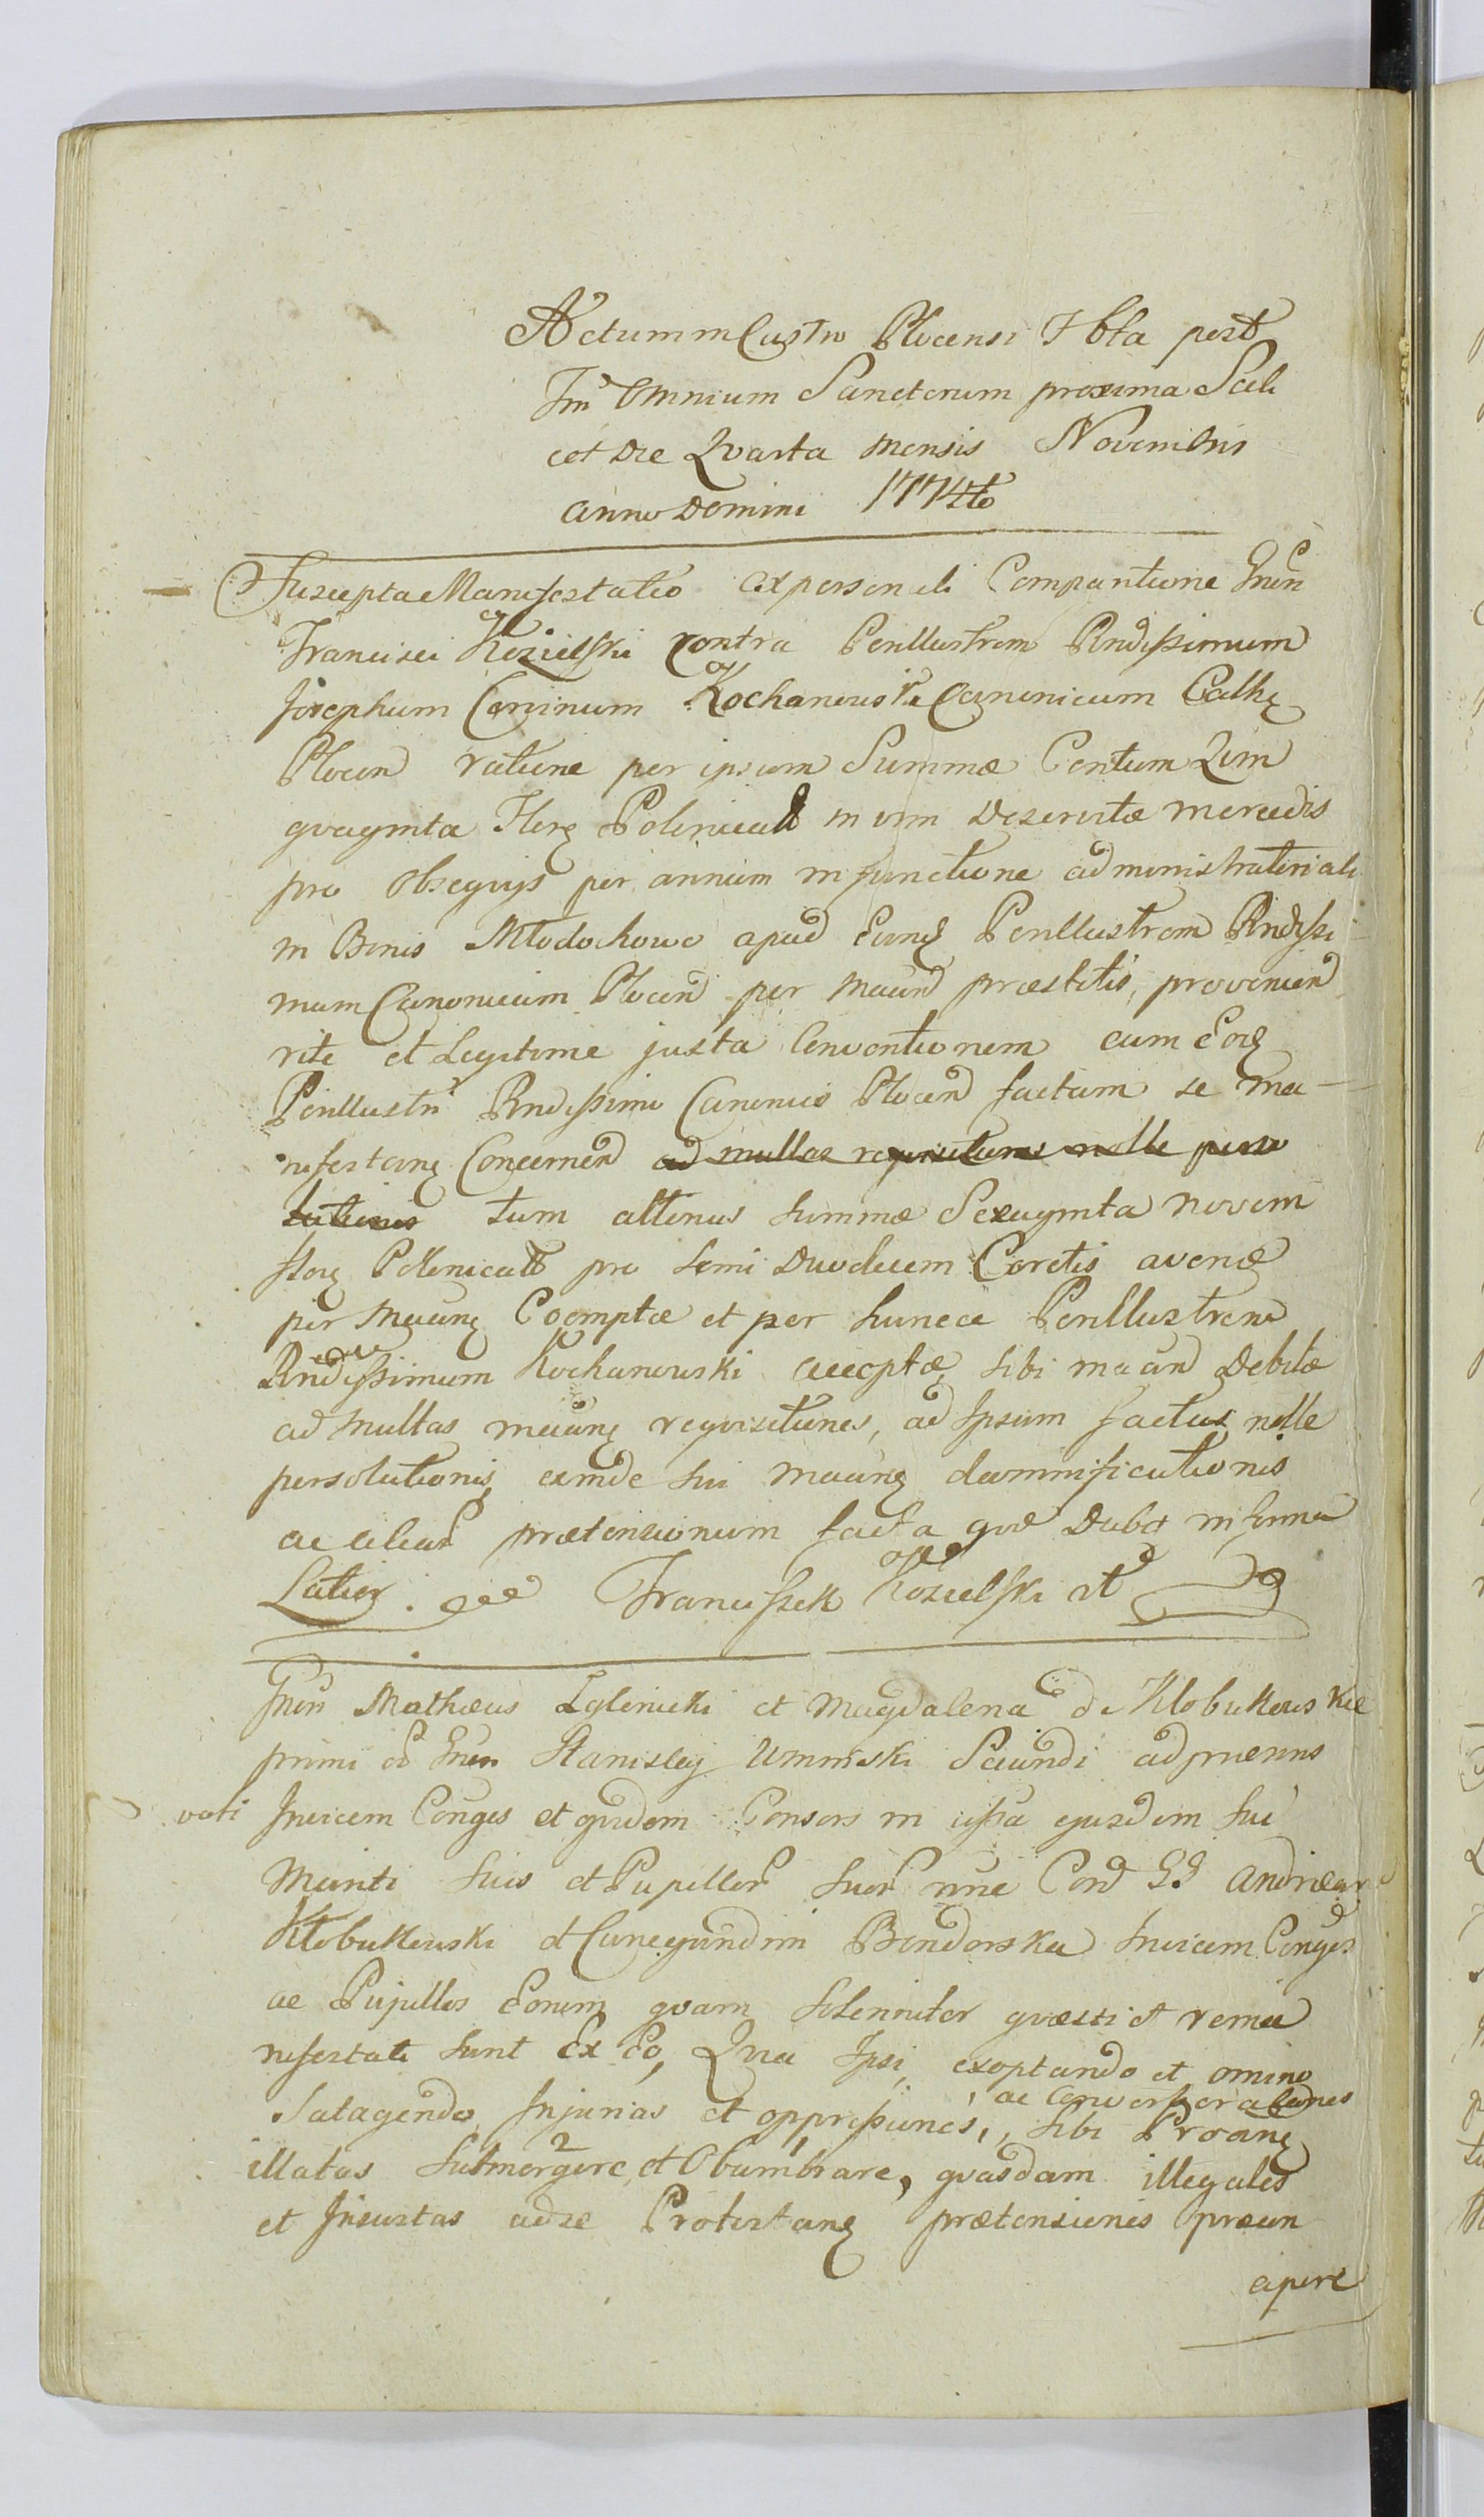 Actum in Castro Plocensi Fbta post
Fm Omnium Sanctorum proxima Scili
cet Die Qvarta mensis Novembris
anno Domini 1774to
Suscepta Manifestatio ex personali Comparitione Gnen
Francisci Kozielski contra Perillustrem Rndissimum
Josephum Corvinum Kochanowski Canonicum Cathę
Plocen ratione per ipsum Summæ Centum Qvin
qvaginta Flor Polonicall in vim Deservitæ mercedis
pro Obseqvijs per annum in functione administratoriali
in Bonis Młodochowo apud Eund Perillustrem Rndissi
mum Canonicum Plocen per Maand præstitis, provenien
rite et Legitime juxta Conventionem cum Eod
Perillustri Rndissimo Canonico Plocen factam se ma-
nifestang Concernen ad multas reqvisitiones nolle perso
lutionis tum alterius summæ Sexaginta novem
flor Polonicall pro semi Duodecem Coretis avenæ
per Maang Coemptæ et per hunce Perillustrem
Rndissimum Kochanowski acceptæ, sibi maand Debitæ
ad multas maang reqvisitiones, ad Ipsum factas nolle
persolutionis, eximde sui maang damnificationis
ac aliar prætensionum facta qvæ Dabit in forma
Latior. Franciszek Kozielski
Gnen Mathæus Zglinicki et Magdalena de Kłobukowskie
primi et Gnen Stanislaj Uminski Secundi ad præsens
voti Invicem Conges et qvidem Consors in assa ejusdem sui
Mariti suis et Pupillor suor nne Cord GG Andræam
Kłobukowski et Cunegundim Bendorska Invicem Conges
ac Pupillos Eorum qvam solenniter qvæsti et rema
nifestati sunt Ex Eo, Qvia Ipsi, exoptando et omino
Satagendo Injurias et oppressiones, ac Converberationes sibi Proang
illatas submergere, et Obumbrare, qvasdam illegales
et Injustas ad se Protestang prætensiones præcon
cipere